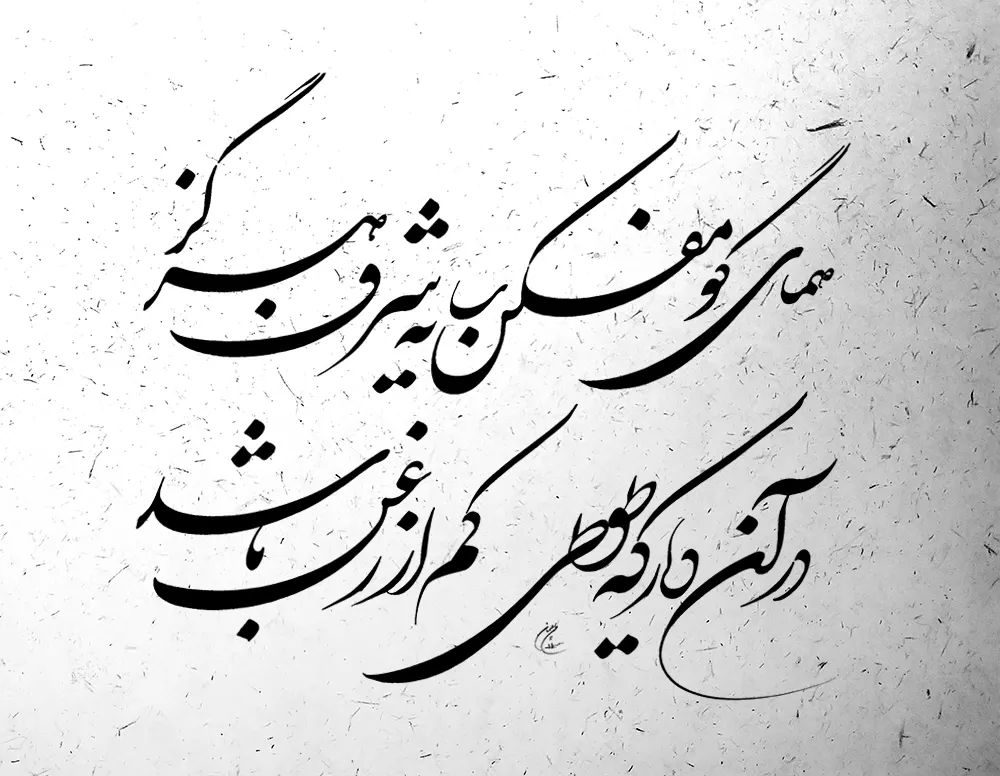 همای گو مفکن سایه شرف هرگز
در آن دیار که طوطی کم از زغن باشد